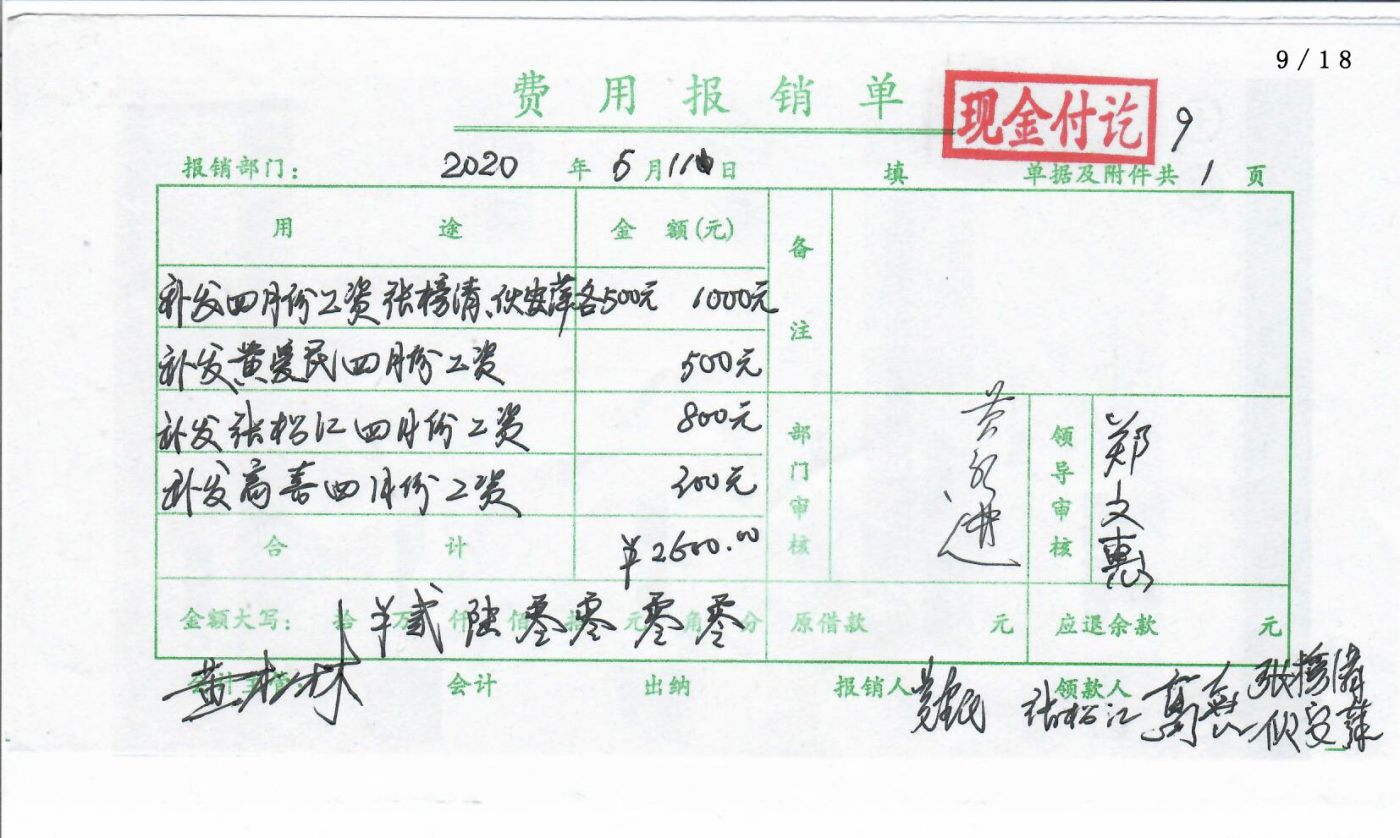 9/18
费用报销单
现金付讫
9
报销部门： 2020 年 5 月 11 日 填 单据及附件共 1 页
用途 金额(元) 备注
补发四月份工资张榜清、伏安萍各500元 1000元
补发黄爱民四月份工资 500元
补发张松江四月份工资 800元
补发高喜四月份工资 300元
合计 ¥2600.00
部门审核
领导审核 郑文惠
金额大写： 拾 万 贰 仟 陆 佰 零 拾 零 元 零 角 零 分 原借款 元 应退余款 元
会计主管： 会计 出纳 报销人 领款人
张松江 张榜清
伏安萍